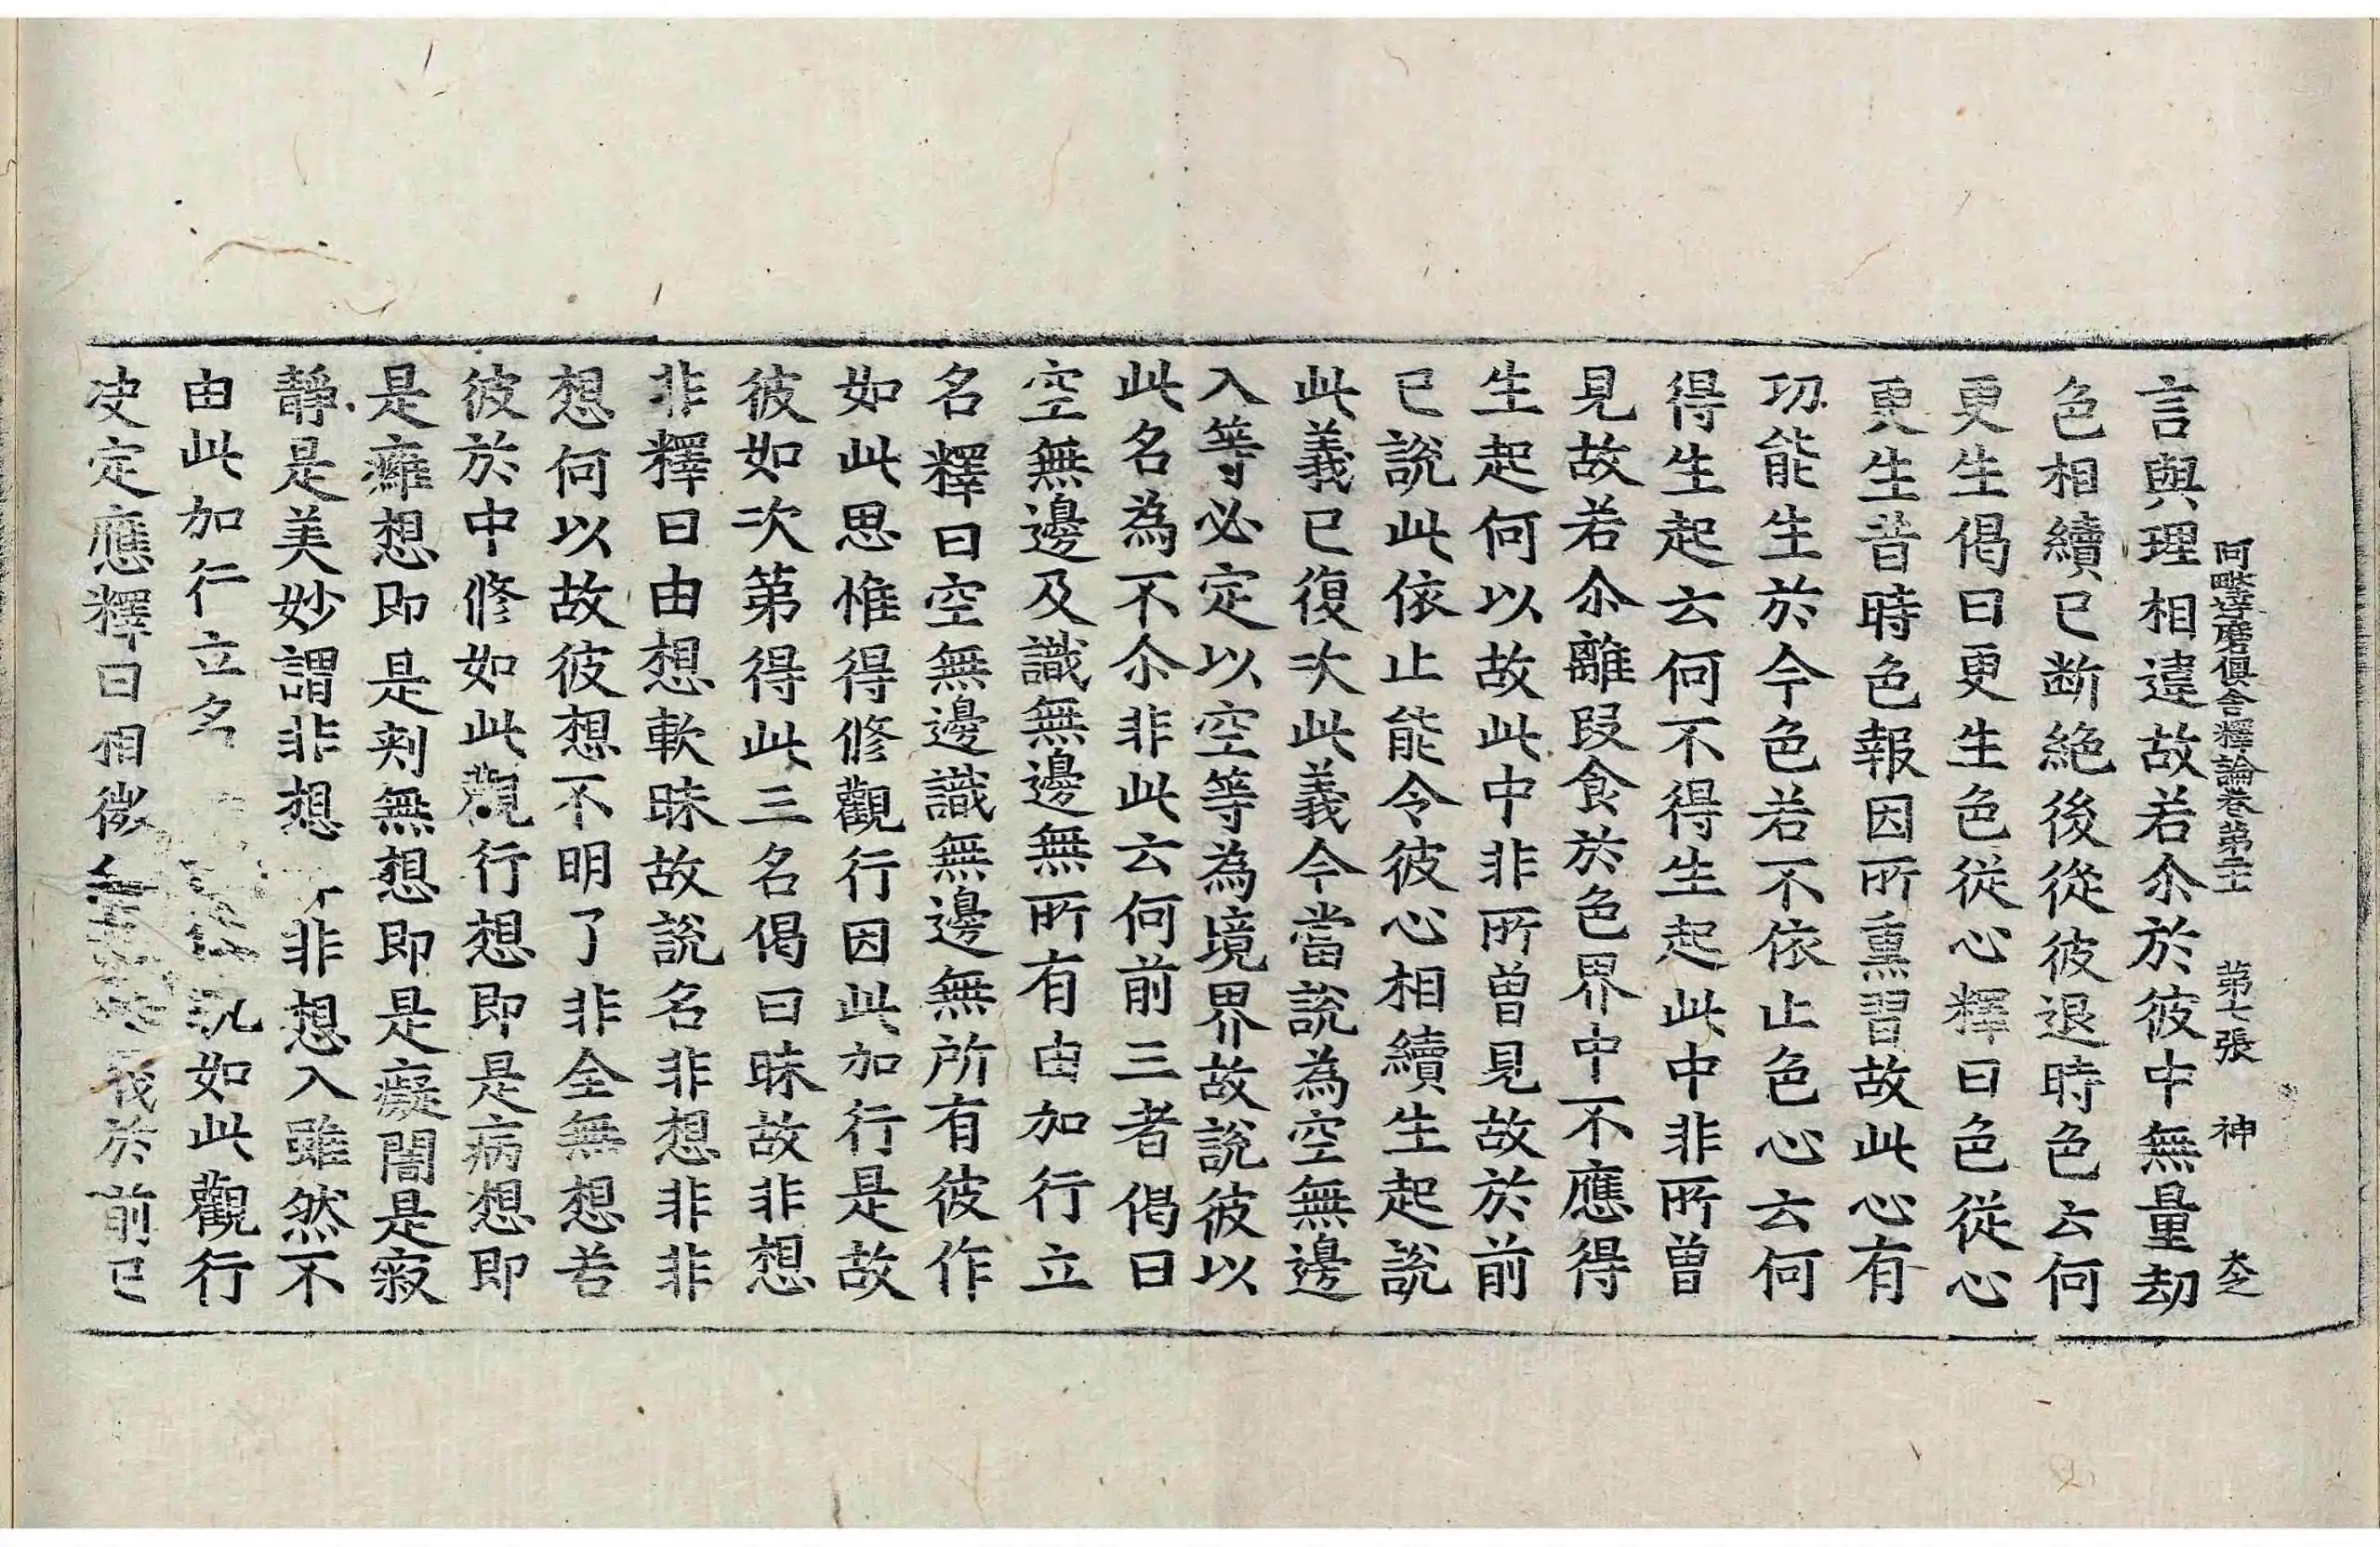 阿毗達磨俱舍釋論卷第二十一 第七張 神
言與理相違故若尒於彼中無量劫
色相續已斷絕後從彼退時色云何
更生偈曰更生色從心釋曰色從心
更生昔時色報因所熏習故此心有
功能生於今色若不依止色心云何
得生起云何不得生起此中非所曾
見故若尒離段食於色界中不應得
生起何以故此中非所曾見故於前
已說此依止能令彼心相續生起說
此義已復次此義今當說為空無邊
入等必定以空等為境界故說彼以
此名為不尒非此云何前三者偈曰
空無邊及識無邊無所有由加行立
名釋曰空無邊識無邊無所有彼作
如此思惟得修觀行因此加行是故
彼如次第得此三名偈曰昧故非想
非釋曰由想軟昧故說名非想非非
想何以故彼想不明了非全無想若
彼於中修如此觀行想即是病想即
是癰想即是刺無想即是癡闇是寂
靜是美妙謂非想非非想入雖然不
由此加行立名如此觀行
決定應釋曰相微於前已